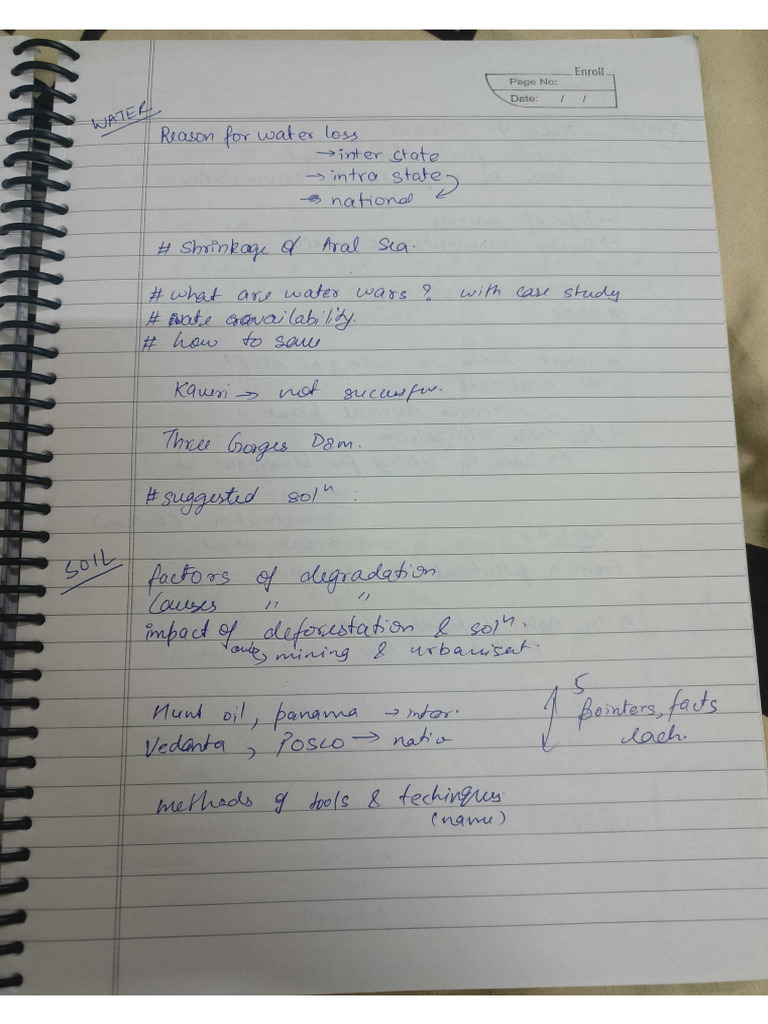 Enroll
Page No:
Date: / /
WATER
Reason for water loss
→ inter state
→ intra state
→ national
# Shrinkage of Aral Sea.
# what are water wars? with case study
# availability.
# how to save
Kaveri → not successfu.
Three Gorges Dam.
# suggested solⁿ :
SOIL
factors of degradation
Causes " "
impact of deforestation & solⁿ.
mining & urbanisat.
Hunt oil, panama → inter.
5
pointers, facts
each.
Vedanta, POSCO → natio
methods of tools & techinques
(name)